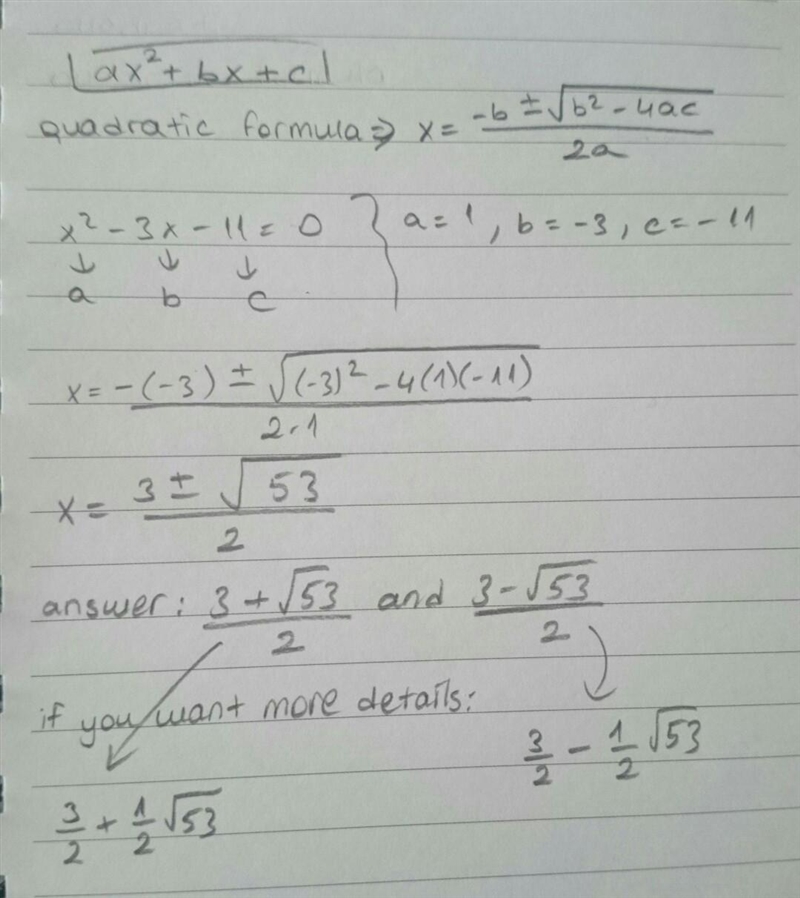 ax² + bx + c
quadratic formula ⇒ x = (-b ± √(b² - 4ac))/(2a)
x² - 3x - 11 = 0 } a = 1, b = -3, c = -11
↓ ↓ ↓
a b c
x = (-(-3) ± √((-3)² - 4(1)(-11)))/(2·1)
x = (3 ± √53)/2
answer: (3 + √53)/2 and (3 - √53)/2
if you want more details:
3/2 - 1/2 √53
3/2 + 1/2 √53